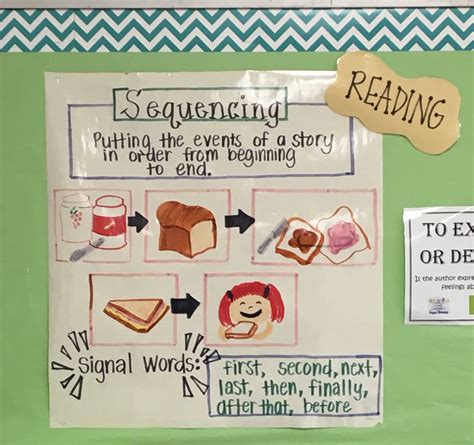 Sequencing
Putting the events of a story
in order from beginning
to end.
READING
Signal Words:
first, second, next,
last, then, finally,
after that, before
TO EX
OR DE
Is the author expre
feelings ab